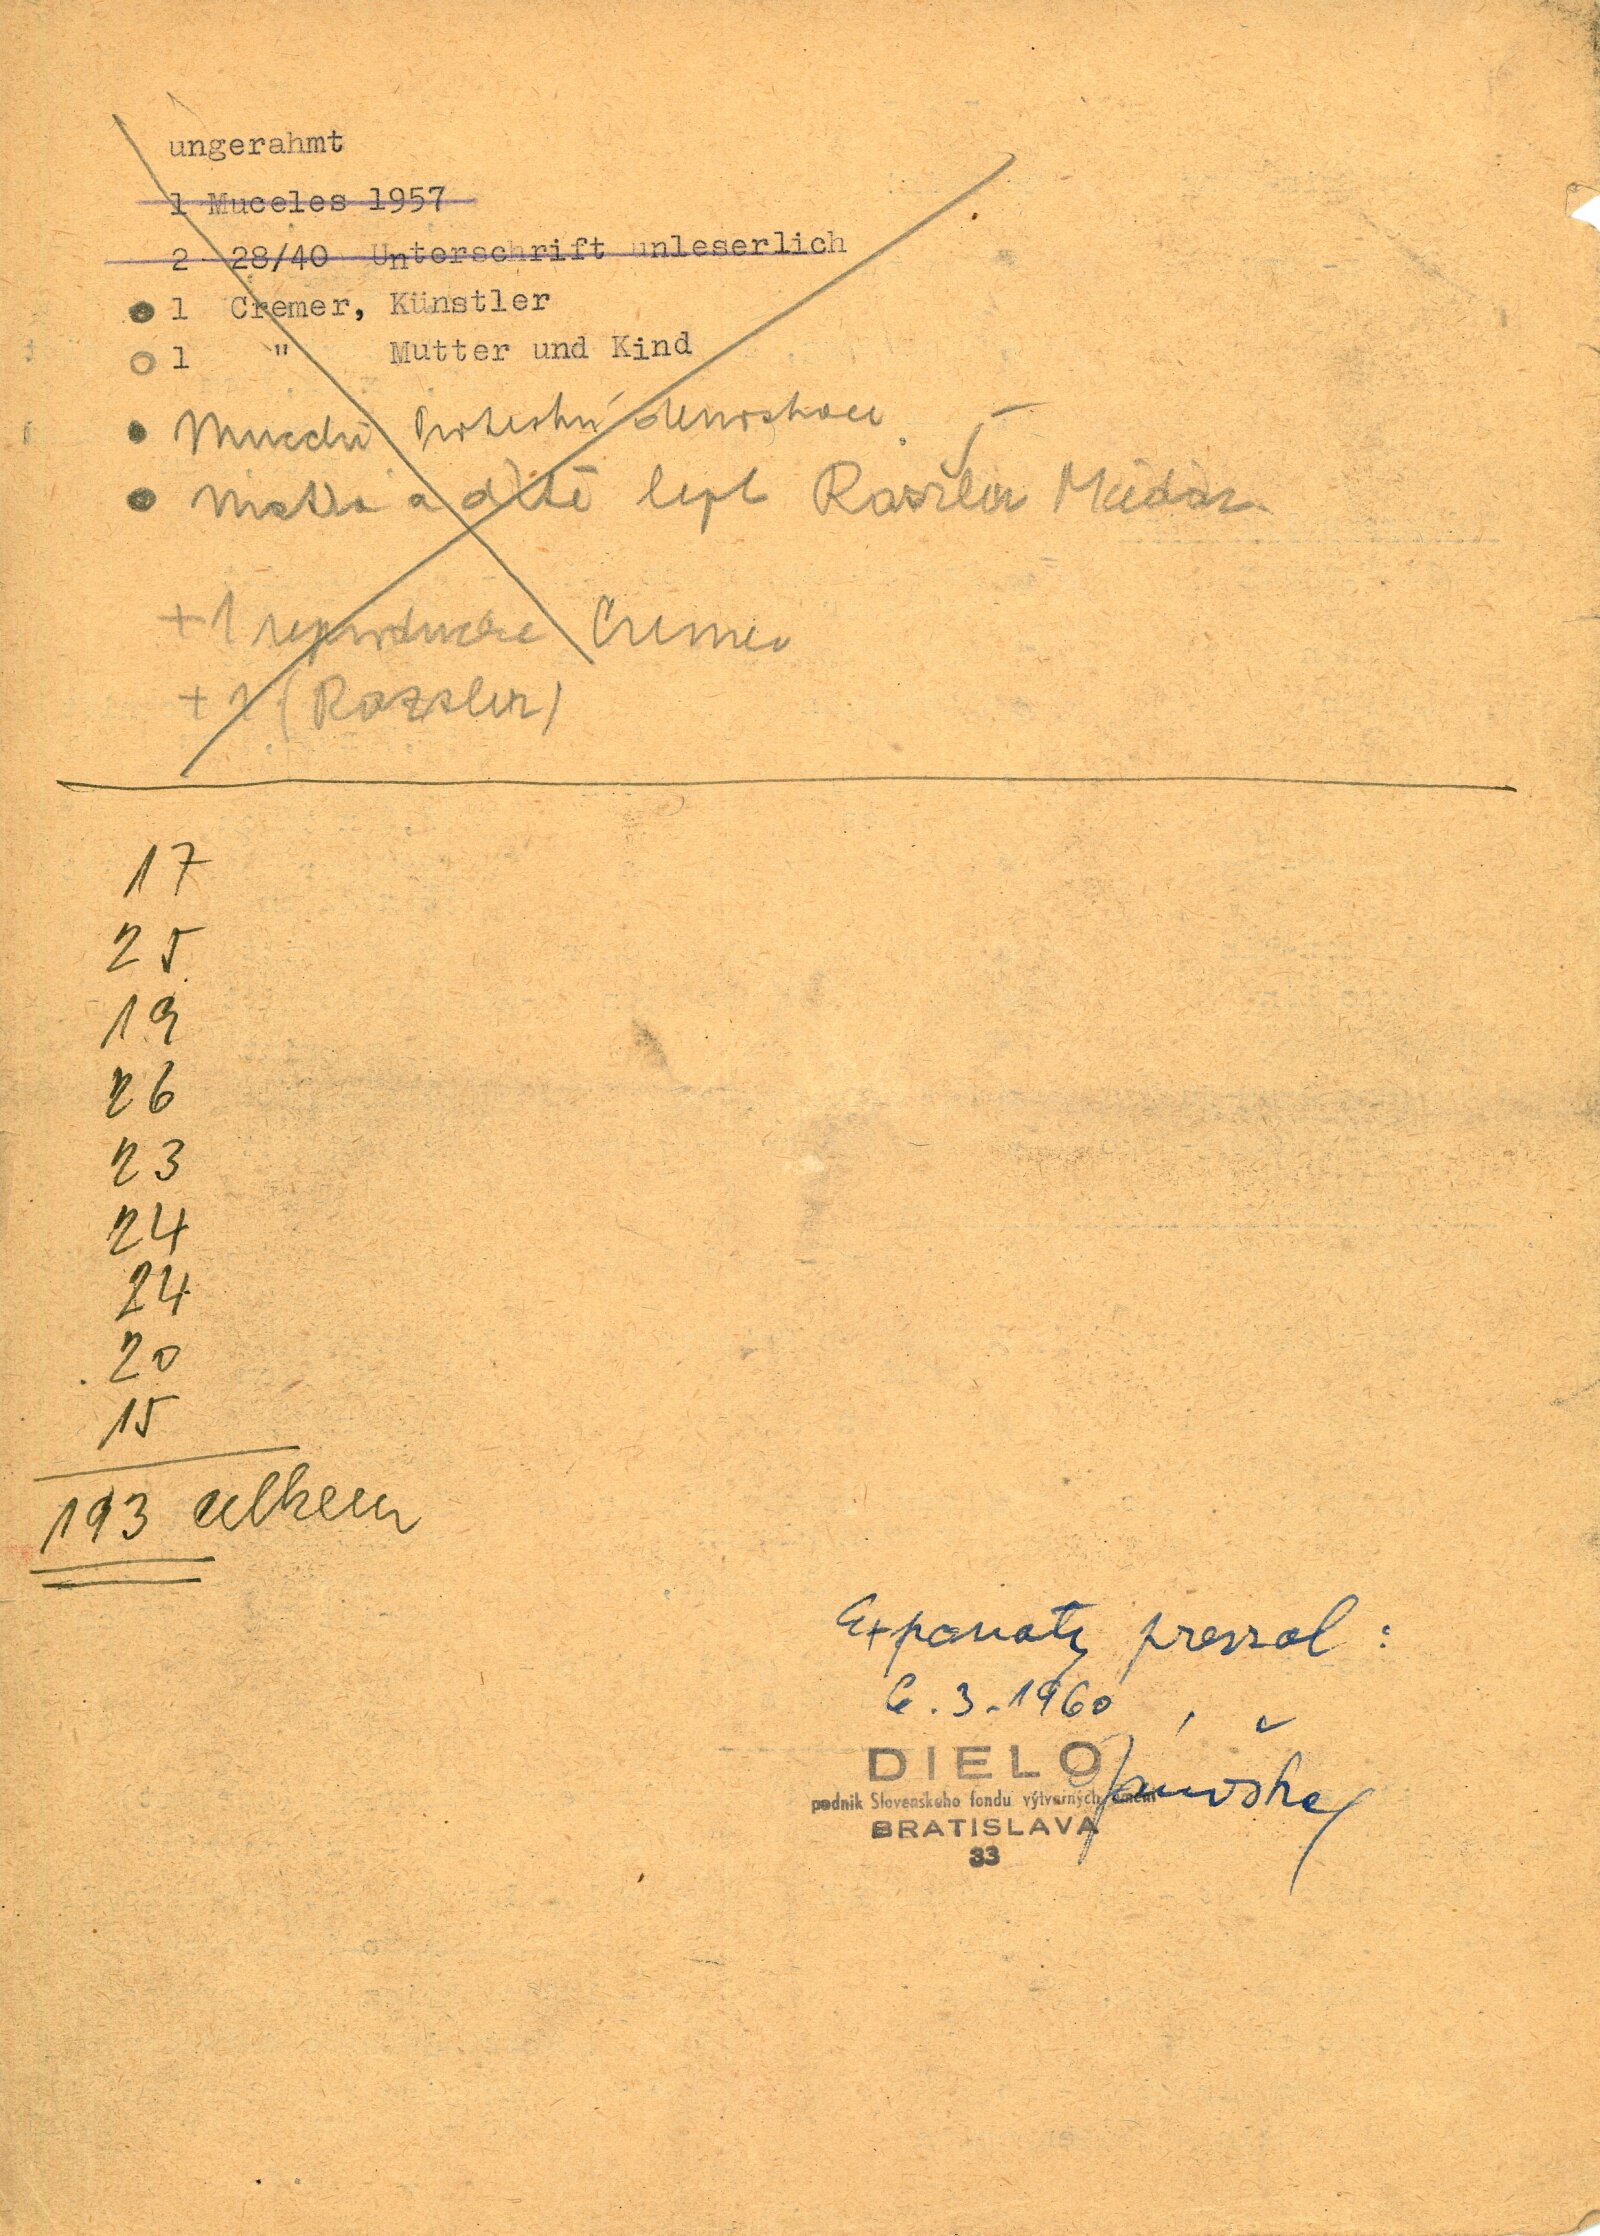 ungerahmt
1 Muceles 1957
2 28/40 Unterschrift unleserlich
1 Cremer, Künstler
1 " Mutter und Kind
Matka a dítě lept
+1 reprodukce Cremer
+1 (Razsler)
17
25
19
26
23
24
24
20
15
193 celkem
Exponaty prevzal :
6.3.1960
DIELO
podnik Slovenského fondu výtvarných umení
BRATISLAVA
33